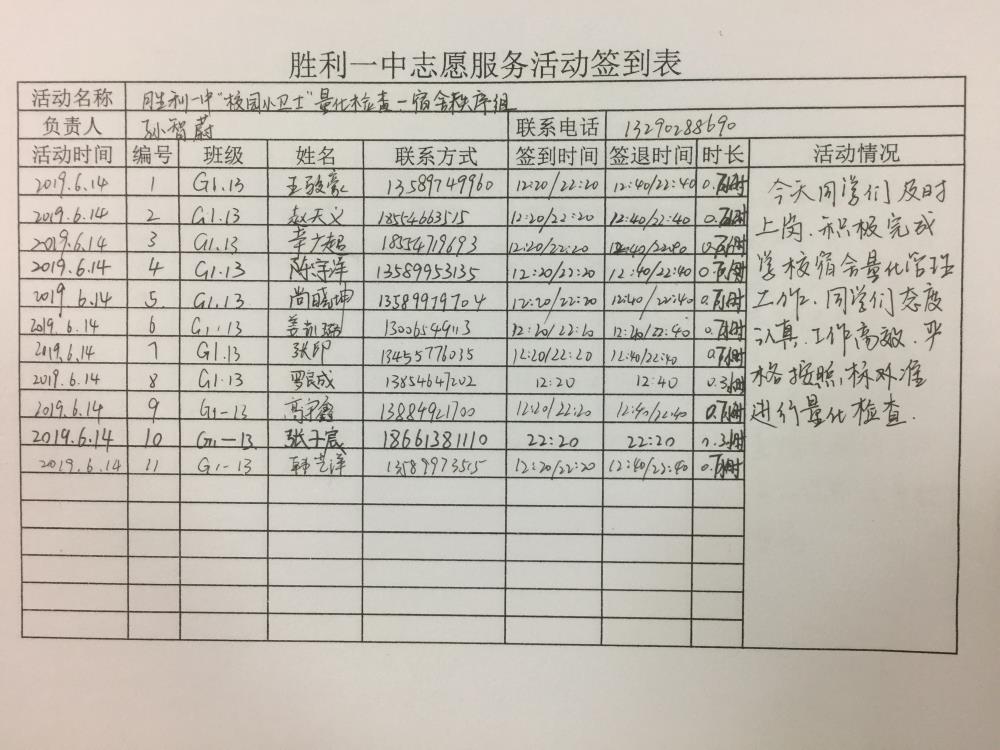 胜利一中志愿服务活动签到表
活动名称 胜利一中"校园小卫士"量化检查-宿舍秩序组
负责人 孙智蔚 联系电话 13290288690
活动时间 编号 班级 姓名 联系方式 签到时间 签退时间 时长 活动情况
2019.6.14 1 G1.13 王骏豪 13589749960 12:20/22:20 12:40/22:40
2019.6.14 2 G1.13 赵天义 18554663515 12:20/22:20 12:40/22:40
2019.6.14 3 G1.13 18554719693 12:20/22:20 12:40/22:40
2019.6.14 4 G1.13 陈宇洋 13589953135 12:20/22:20 12:40/22:40
2019.6.14 5 G1.13 尚晓坤 13589979704 12:20/22:20 12:40/22:40
2019.6.14 6 G1.13 12:20/22:20 12:20/22:40
2019.6.14 7 G1.13 张印 13455776035 12:20/22:20 12:40/22:40
2019.6.14 8 G1.13 13854647202 12:20 12:40
2019.6.14 9 G1-13 高宇鑫 13884921700 12:20/22:20 12:40/22:40
2019.6.14 10 G1-13 张子宸 18661381110 22:20 22:20
2019.6.14 11 G1-13 韩艺洋 13589973515 12:20/22:20 12:40/22:40
今天同学们及时
上岗、积极完成
学校宿舍量化管理
工作、同学们态度
认真、工作高效、严
格按照标对准
进行量化检查.